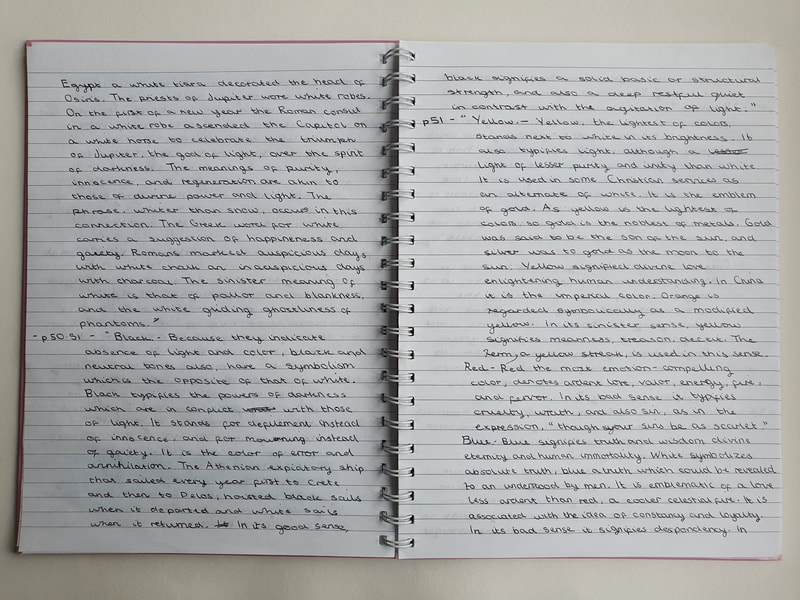 Egypt a white tiara decorated the head of
Osiris. The priests of Jupiter wore white robes.
On the first of a new year the Roman consul
in a white robe ascended the Capitol on
a white horse to celebrate the triumph
of Jupiter, the god of light, over the spirit
of darkness. The meanings of purity,
innocence, and regeneration are akin to
those of divine power and light. The
phrase, whiter than snow, occurs in this
connection. The Greek word for white
carries a suggestion of happineness and
gaiety. Romans marked auspicious days
with white chalk an inauspicious days
with charcoal. The sinister meaning of
white is that of pallor and blankness,
and the white gliding ghostliness of
phantoms."
- p50-51 - "Black - Because they indicate
absence of light and color, black and
neutral tones also, have a symbolism
which is the opposite of that of white.
Black typifies the powers of darkness
which are in conflict with those
of light. It stands for defilement instead
of innocence, and for mourning instead
of gaiety. It is the color of error and
annihilation. The Athenian expiatory ship
that sailed every year first to Crete
and then to Delos, hoisted black sails
when it departed and white sails
when it returned. In its good sense,
black signifies a solid basic or structural
strength, and also a deep restful quiet
in contrast with the agitation of light."
- p51 - "Yellow. - Yellow, the lightest of colors,
stands next to white in its brightness. It
also typifies light, although a
light of lesser purity and unity than white
It is used in some Christian services as
an alternate of white. It is the emblem
of gold. As yellow is the lightest of
colors, so gold is the noblest of metals. Gold
was said to be the son of the sun, and
silver was to gold as the moon to the
sun. Yellow signified divine love
enlightening human understanding. In China
it is the imperial color. Orange is
regarded symbolically as a modified
yellow. In its sinister sense, yellow
signifies meanness, treason, deceit. The
term, a yellow streak, is used in this sense.
Red - Red the most emotion-compelling
color, denotes ardent love, valor, energy, fire,
and fervor. In its bad sense it typifies
cruelty, wrath, and also sin, as in the
expression, "though your sins be as scarlet."
Blue - Blue signifies truth and wisdom divine
eternity and human immortality. White symbolizes
absolute truth, blue a truth which could be revealed
to an understood by men. It is emblematic of a love
less ardent than red, a cooler celestial fire. It is
associated with the idea of constancy and loyalty.
In its bad sense it signifies despondency. In